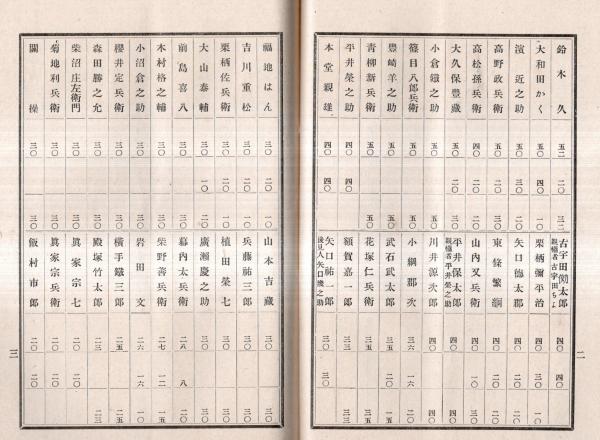 鈴木久 五二 二〇 三二
大和田かく 五〇 四〇 一〇
濱近之助 五〇 三〇 二〇
高野政兵衛 五〇 五〇
高松孫兵衛 五〇 二〇 三〇
大久保豊蔵 五〇 二〇 三〇
小倉鐵之助 五〇 五〇
篠目八郎兵衛 五〇 五〇
豊崎羊之助 五〇 五〇
青柳新兵衛 五〇 五〇
平井榮之助 四〇 四〇
本堂親雄 四〇 四〇
古字田 太郎 親權者古字田ちよ 四〇 四〇
栗栖彌平治 四〇 三〇 一〇
矢口德太郎 四〇 二〇 二〇
東條繁綱 四〇 二〇 二〇
山内又兵衛 四〇 一〇 三〇
平井保太郎 親權者平井榮之助 四〇 四〇
川井源次郎 四〇 四〇
小綱郡次 三六 一六 二〇
武石武太郎 三五 二〇 一五
花塚仁兵衛 三五 三五
額賀嘉一郎 三三 三三
矢口祐一郎 後見人矢口磯之助 三〇 三〇
二
福地はん 三〇 三〇
吉川重松 三〇 二〇 一〇
栗栖佐兵衛 三〇 二〇 一〇
大山泰輔 三〇 一〇 二〇
前島喜八 三〇 三〇
木村格之輔 三〇 三〇
小沼倉之助 三〇 三〇
櫻井定兵衛 三〇 三〇
森田勝之允 三〇 三〇
柴沼庄左衛門 三〇 三〇
菊地利兵衛 三〇 三〇
關操 三〇 三〇
山本吉蔵 三〇 三〇
兵藤祐三郎 三〇 三〇
植田榮七 三〇 三〇
廣瀬慶之助 三〇 三〇
幕内太兵衛 二八 八 二〇
柴野善兵衛 二七 一二 一五
岩田文 二六 一六 一〇
横手鐵三郎 二五 二五
殿塚竹太郎 二三 二三
眞家宗七 二〇 二〇
眞家宗兵衛 二〇 二〇
飯村市郎 二〇 二〇
三